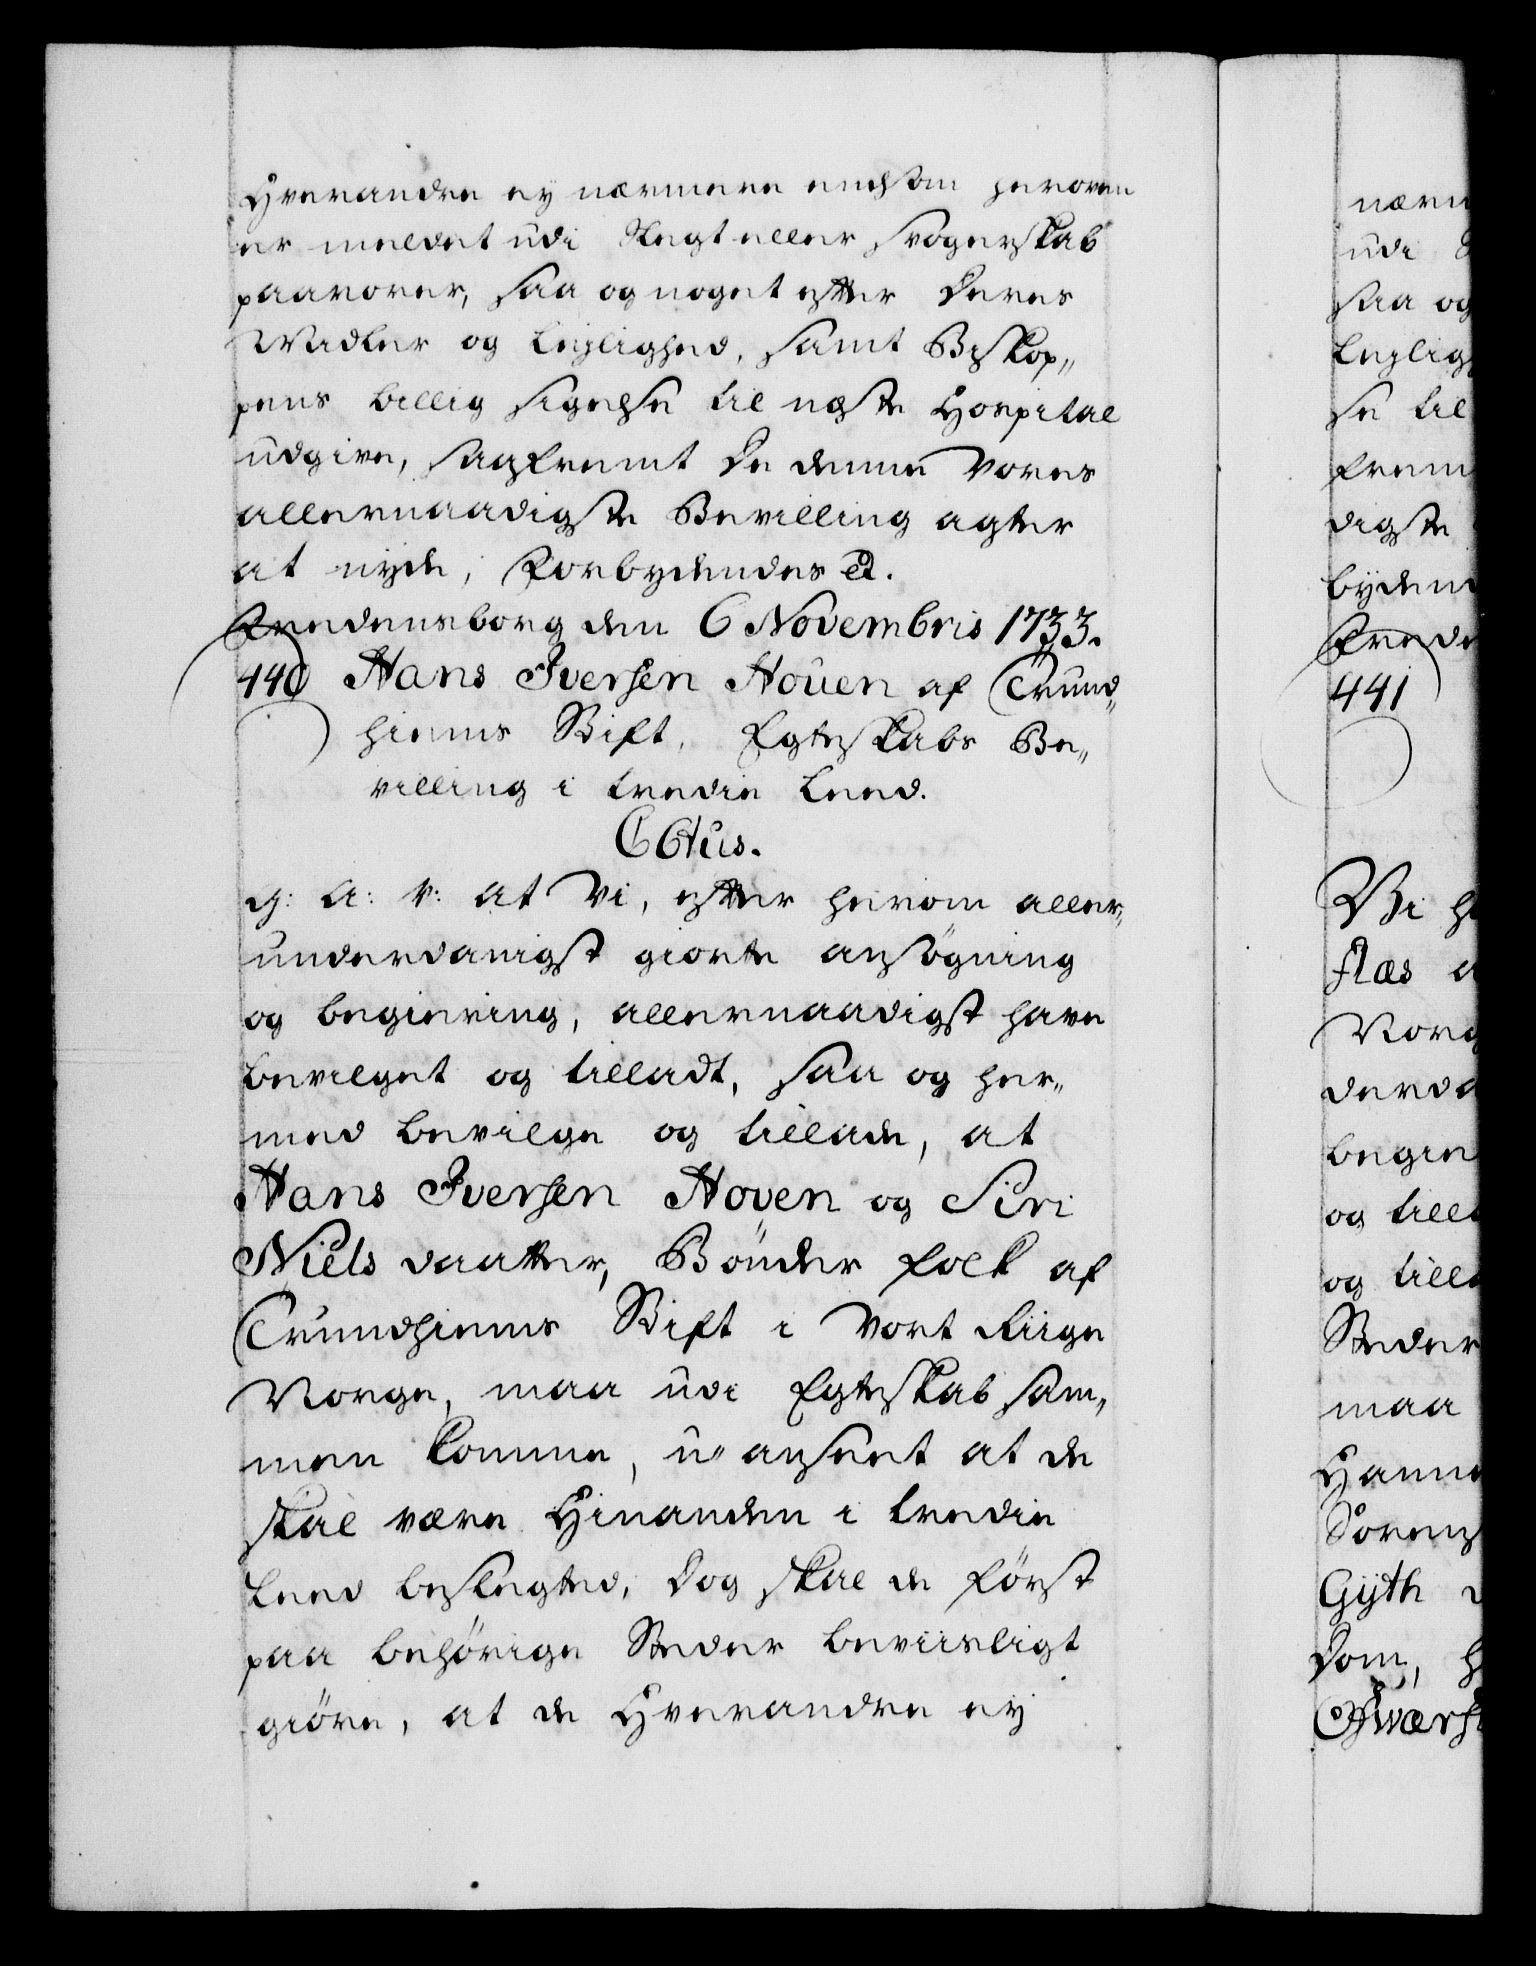 Hverandre ey nærmere end som heroven
er meldet udi Slegt eller Svogerskab
paarører, saa og noget efter Deres
Midler og Lejlighed, samt Biskop„
pens billig sigelse til næste Hospital
udgive, saafremt De denne Vores
allernaadigste Bevilling agter
at nyde, Forbydendes et.
Fredensborg den 6 Novembris 1733.
440 Hans Iversen Houen af Trund„
hiems Stift, Egteskabs Be„
villing i tredie Leed.
C6tus.
G: A: V: at Vi, efter herom aller„
underdanigst giorte ansøgning
og begiering, allernaadigst have
bevilget og tilladt, saa og her„
med bevilge og tillade, at
Hans Iversen Hoven og Siri
Niels daatter, Bønder folk af
Trundhiems Stift i Vort Riige
Norge, maa udi Egteskab sam„
men komme, u„anseet at de
skal være Hinanden i tredie
Leed beslegted, Dog skal de først
paa behørige Steder beviisligt
giøre, at de Hverandre ey
nærm
udi S
saa og
Lejlig
se til
frem
digste
byden
Frede
441
Vi h
flæs a
Norg
derda
begie
og till
og till
Steder
maa
Hanne
Sørens
Gyth
Dom, h